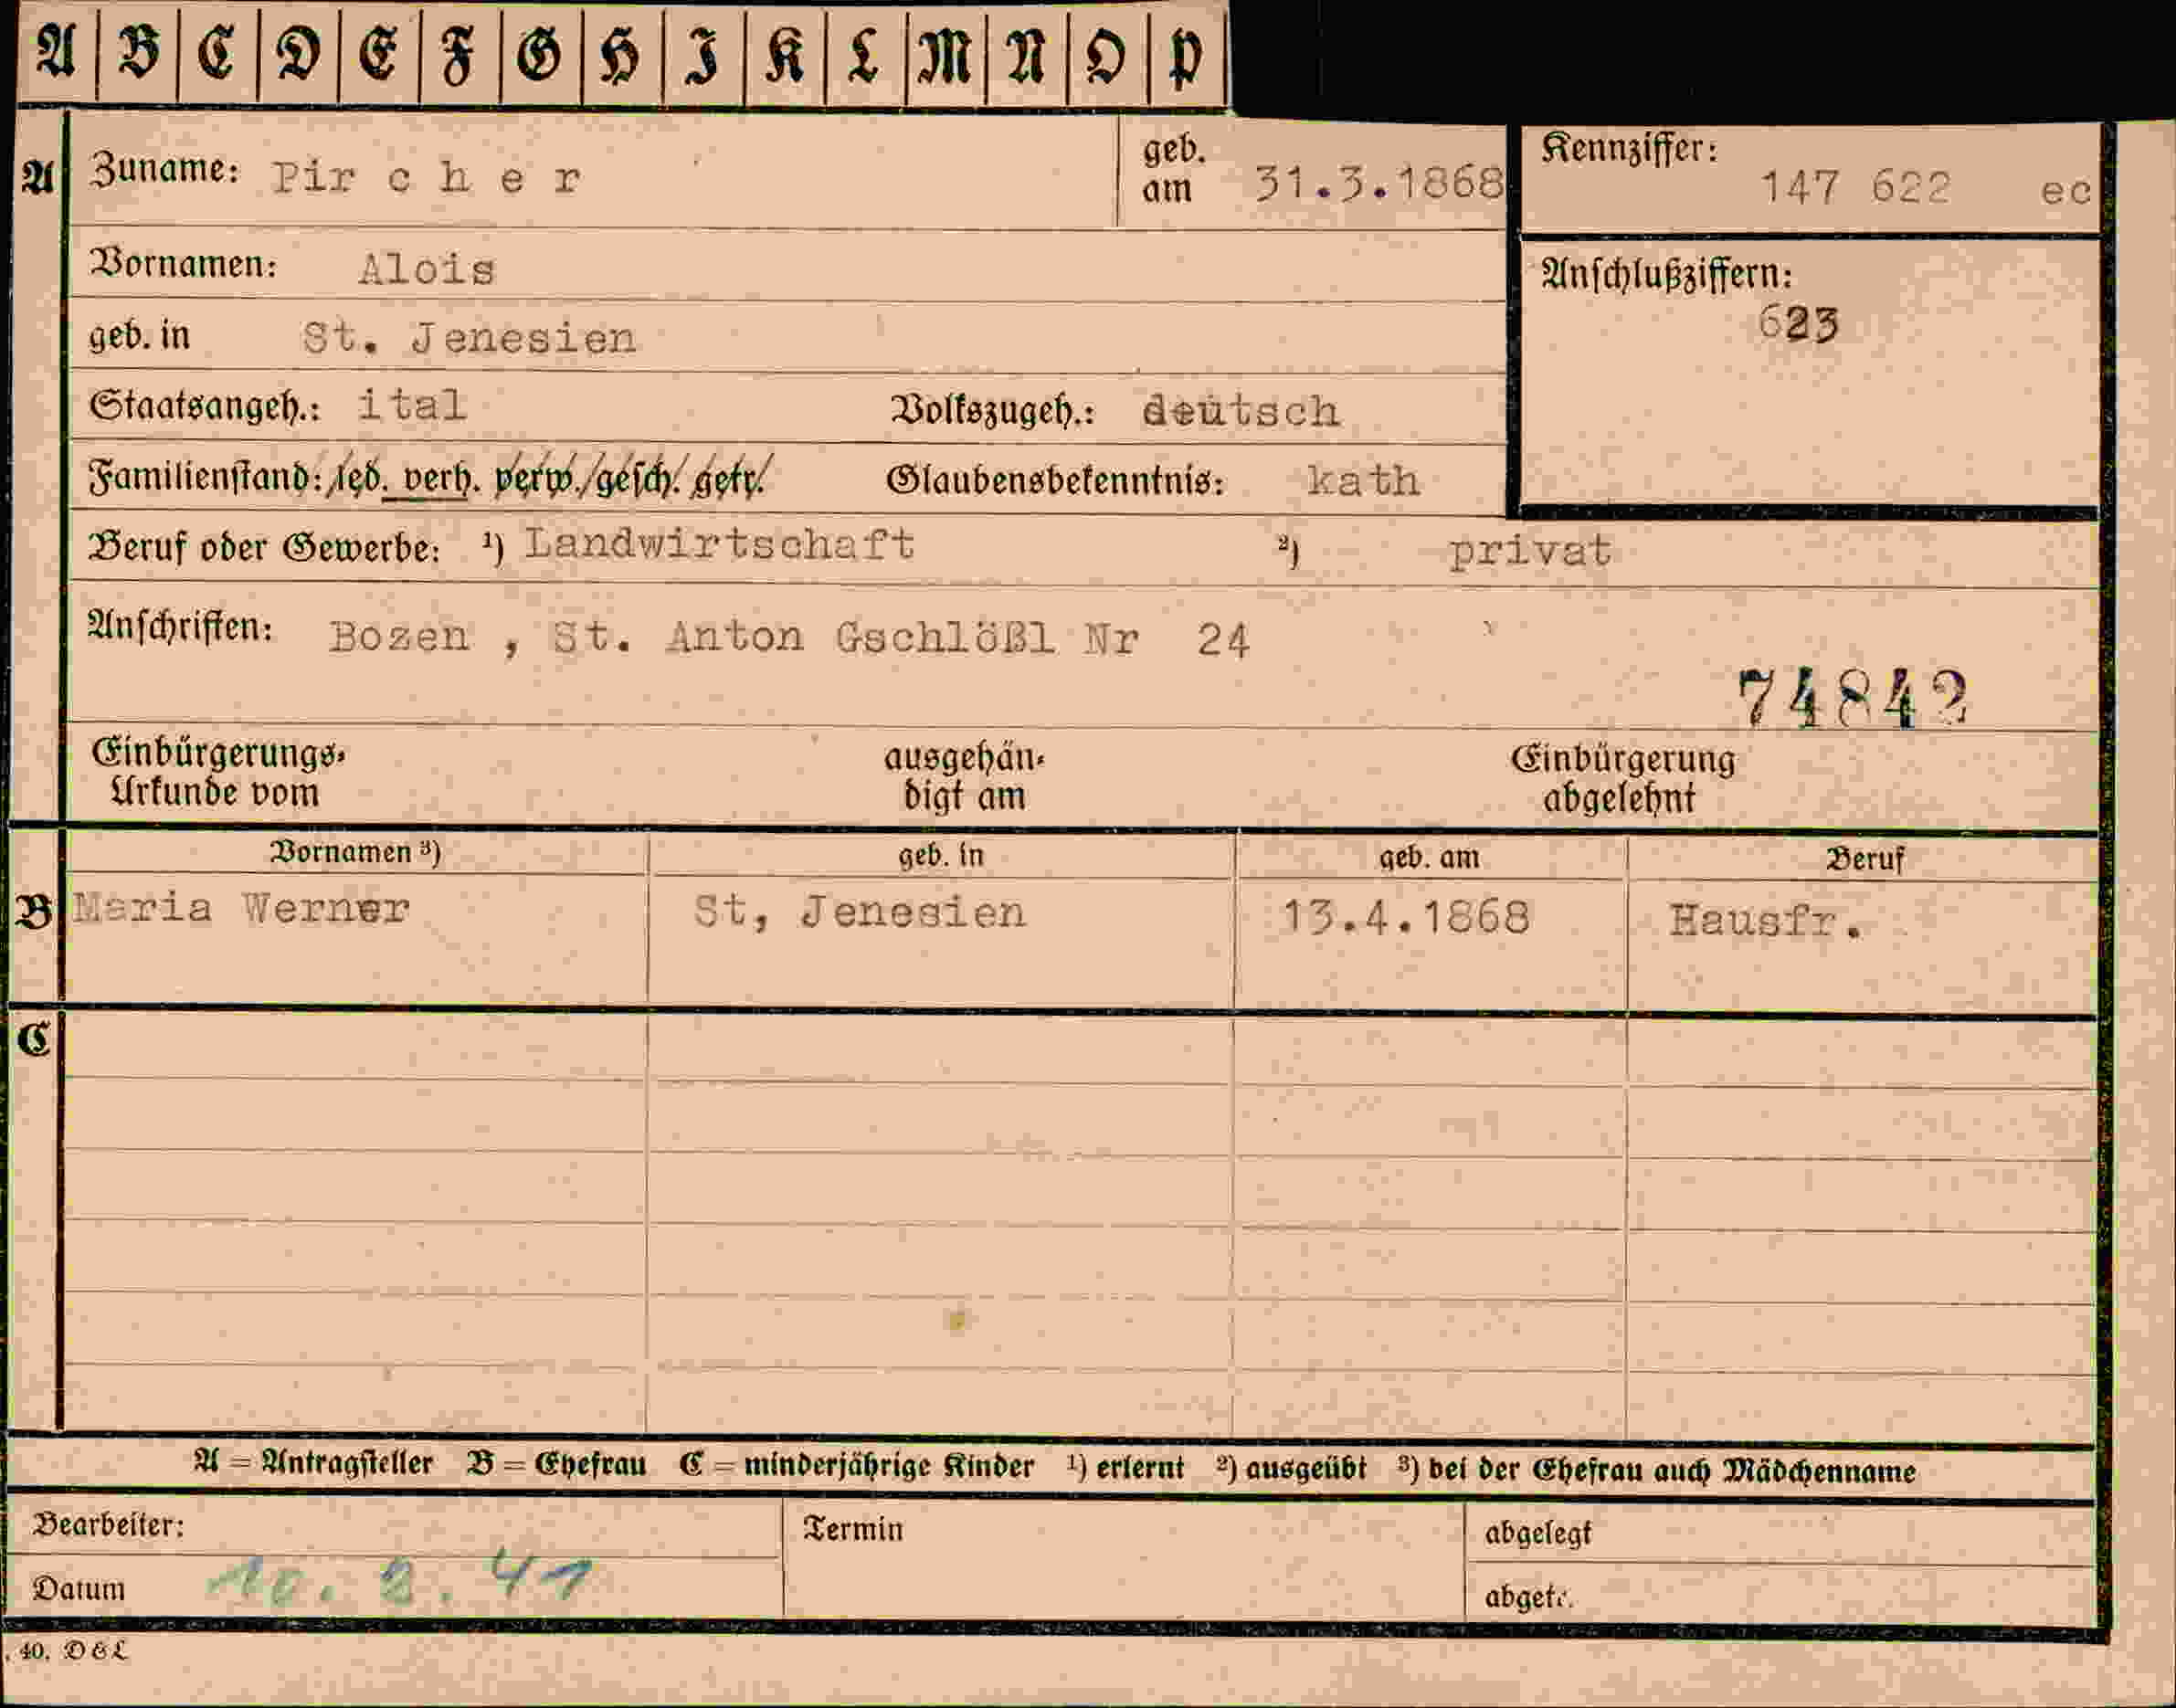 A B C D E F G H I K L M N O P
A Zuname: Pir c h e r geb. am 31.3.1868 Kennziffer: 147 622 ec
Vornamen: Alois Anschlußziffern: 623
geb. in St. Jenesien
Staatsangeh.: ital Volkszugeh.: deutsch
Familienstand: led. verh. verw. gesch. getr. Glaubensbekenntnis: kath
Beruf oder Gewerbe: ¹) Landwirtschaft ²) privat
Anschriften: Bozen , St. Anton Gschlößl Nr 24
74842
Einbürgerungs- ausgehän- Einbürgerung
Urkunde vom digt am abgelehnt
Vornamen ³) geb. in geb. am Beruf
B Maria Werner St, Jenesien 13.4.1868 Hausfr.
C
A = Antragsteller B = Ehefrau C = minderjährige Kinder ¹) erlernt ²) ausgeübt ³) bei der Ehefrau auch Mädchenname
Bearbeiter: Termin abgelegt
Datum abgetr.
40.